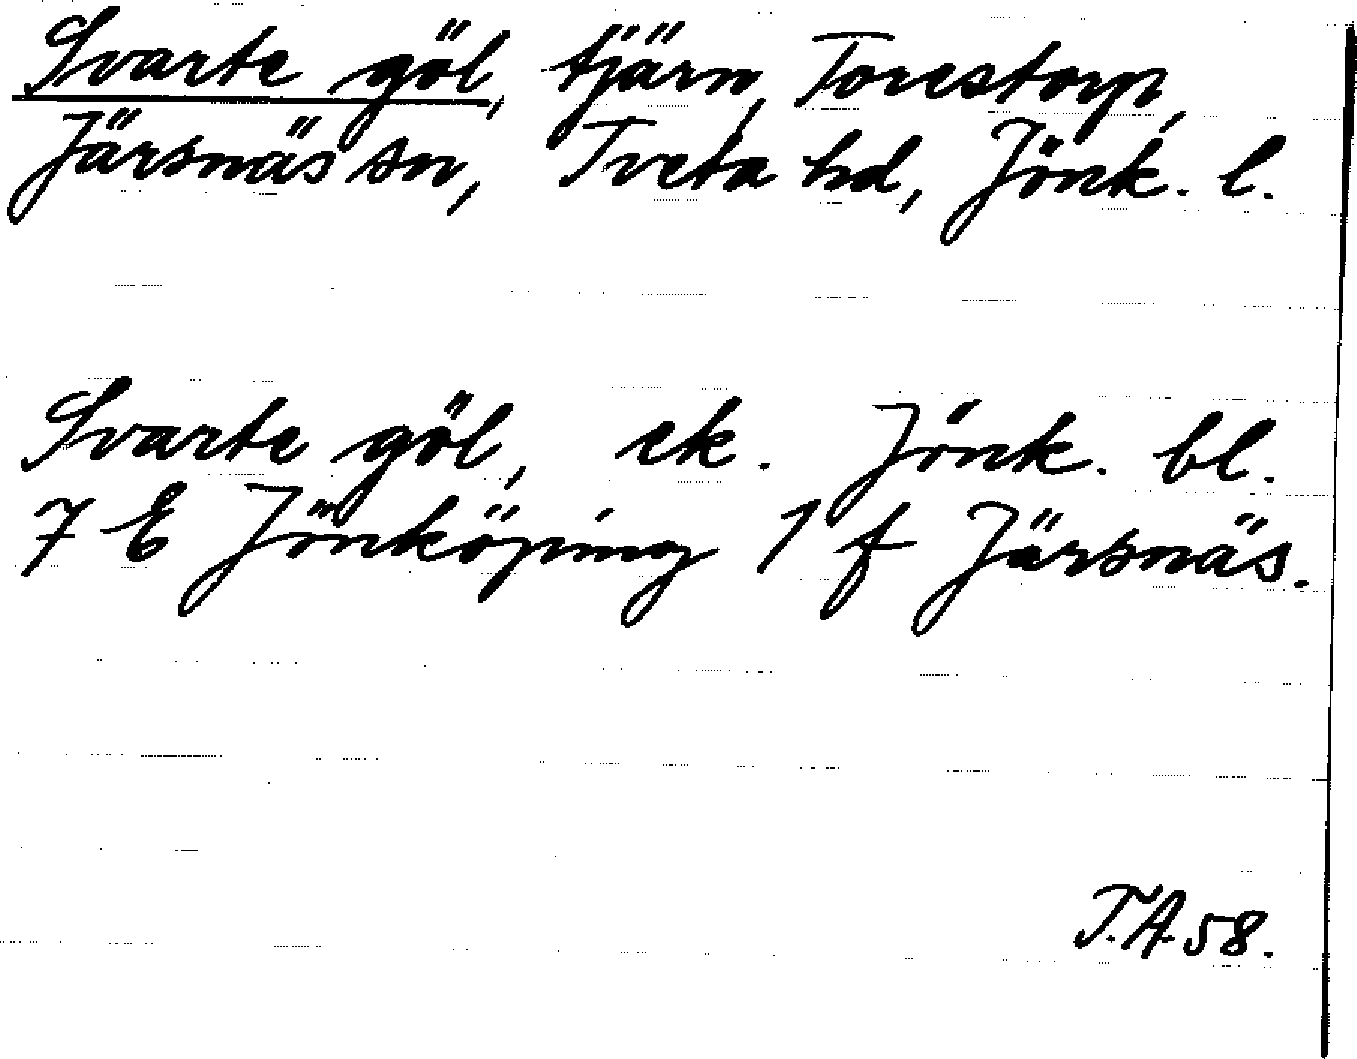 Svarte göl, tjärn, Torestorp,
Järsnäs sn, Tveta hd, Jönk. l.
Svarte göl, ek. Jönk. bl.
7 E Jönköping 1 f Järsnäs.
T.A. 58.